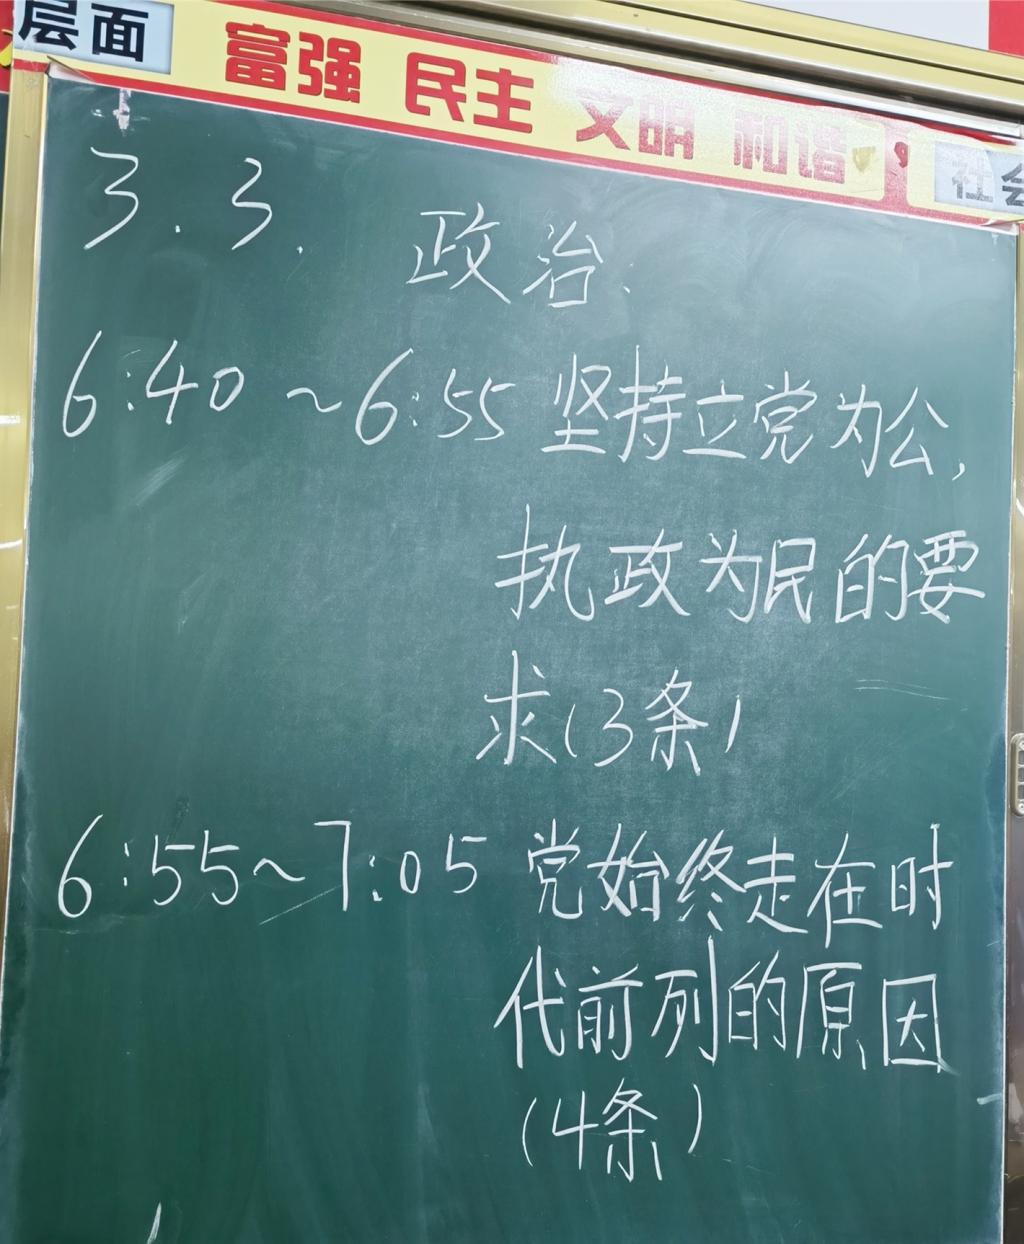 层面 富强 民主 文明 和谐 社会
3.3. 政治:
6:40~6:55 坚持立党为公,
执政为民的要
求(3条)
6:55~7:05 党始终走在时
代前列的原因
(4条)